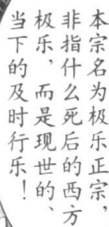 本宗名为极乐正宗，
非指什么死后的西方
极乐，而是现世的、
当下的及时行乐！